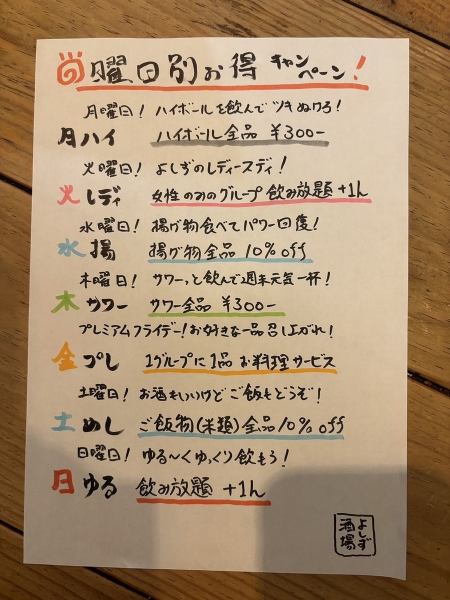 曜日別お得キャンペーン!
月曜日! ハイボールを飲んでツキぬけろ!
月ハイ ハイボール全品 ¥300-
火曜日! よしずのレディースディ!
火レディ 女性のみのグループ 飲み放題+1h
水曜日! 揚げ物食べてパワー回復!
水揚 揚げ物全品 10% off
木曜日! サワーっと飲んで週末元気一杯!
木サワー サワー全品 ¥300-
プレミアムフライデー!お好きな一品召し上がれ!
金プレ 1グループに1品 お料理サービス
土曜日! お酒もいいけど ご飯もどうぞ!
土めし ご飯物(米類)全品10% off
日曜日! ゆる〜くゆっくり飲もう!
日ゆる 飲み放題 +1h
よしず
酒場